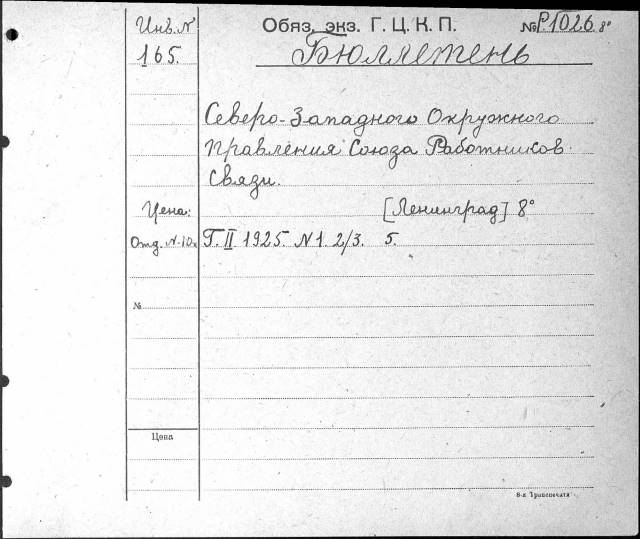 Инв. N Обяз. экз. Г. Ц. К. П. № Р.1026 8°
165. Бюллетень
Северо-Западного Окружного
Правления Союза Работников
Связи.
Цена: [Ленинград] 8°
Отд. N-10к Г. II 1925. N 1. 2/3. 5.
№
Цена
8-я Транспечати